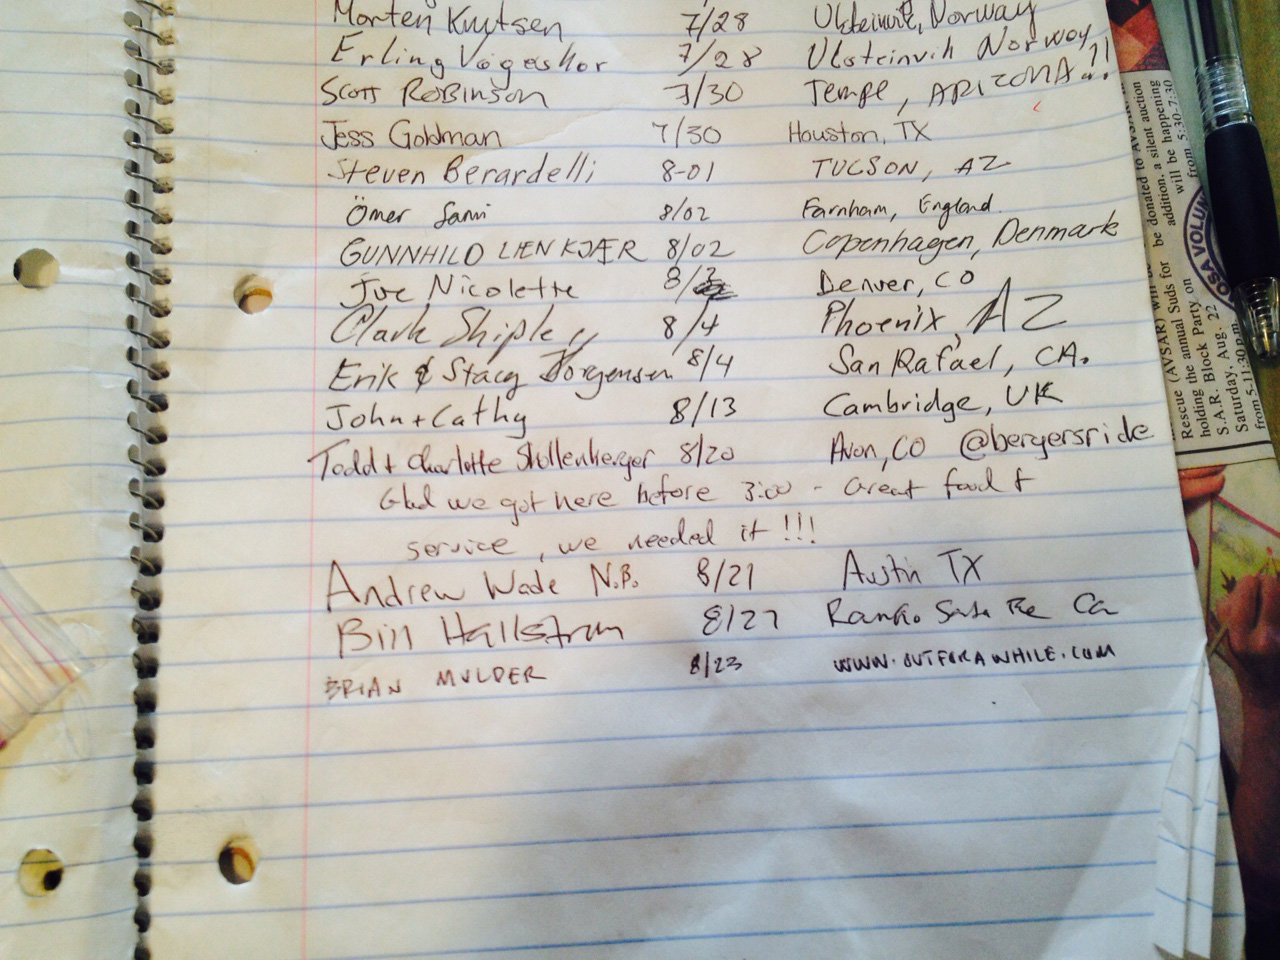 Morten Knutsen 7/28 Ulsteinvik, Norway
Erling Vågeskor 7/28 Ulsteinvik Norway
Scott Robinson 7/30 Tempe, ARIZONA!!
Jess Goldman 7/30 Houston, TX
Steven Berardelli 8-01 TUCSON, AZ
Ömer Sami 8/02 Farnham, England.
GUNNHILD LIEN KJÆR 8/02 Copenhagen, Denmark
Joe Nicolette 8/3 Denver, CO
Clark Shipley 8/4 Phoenix, AZ
Erik & Stacy Jorgensen 8/4 San Rafael, CA.
John + Cathy 8/13 Cambridge, UK
Todd + Charlotte Stollenberger 8/20 Avon, CO @bergersride
Glad we got here before 3:00 - Great food +
service, we needed it!!!
Andrew Wade N.B. 8/21 Austin TX
Bill Hallstrom 8/27 Rancho Santa Fe Ca
BRIAN MULDER 8/23 WWW.OUTFORAWHILE.COM
Rescue (AVSAR) will be
holding the annual Suds for
S.A.R. Block Party on
Saturday, Aug. 22
from 5-11:30 p.m.
be donated to AVSAR
addition, a silent auction
will be happening
from 5:30-7:30
OSA VOLUN